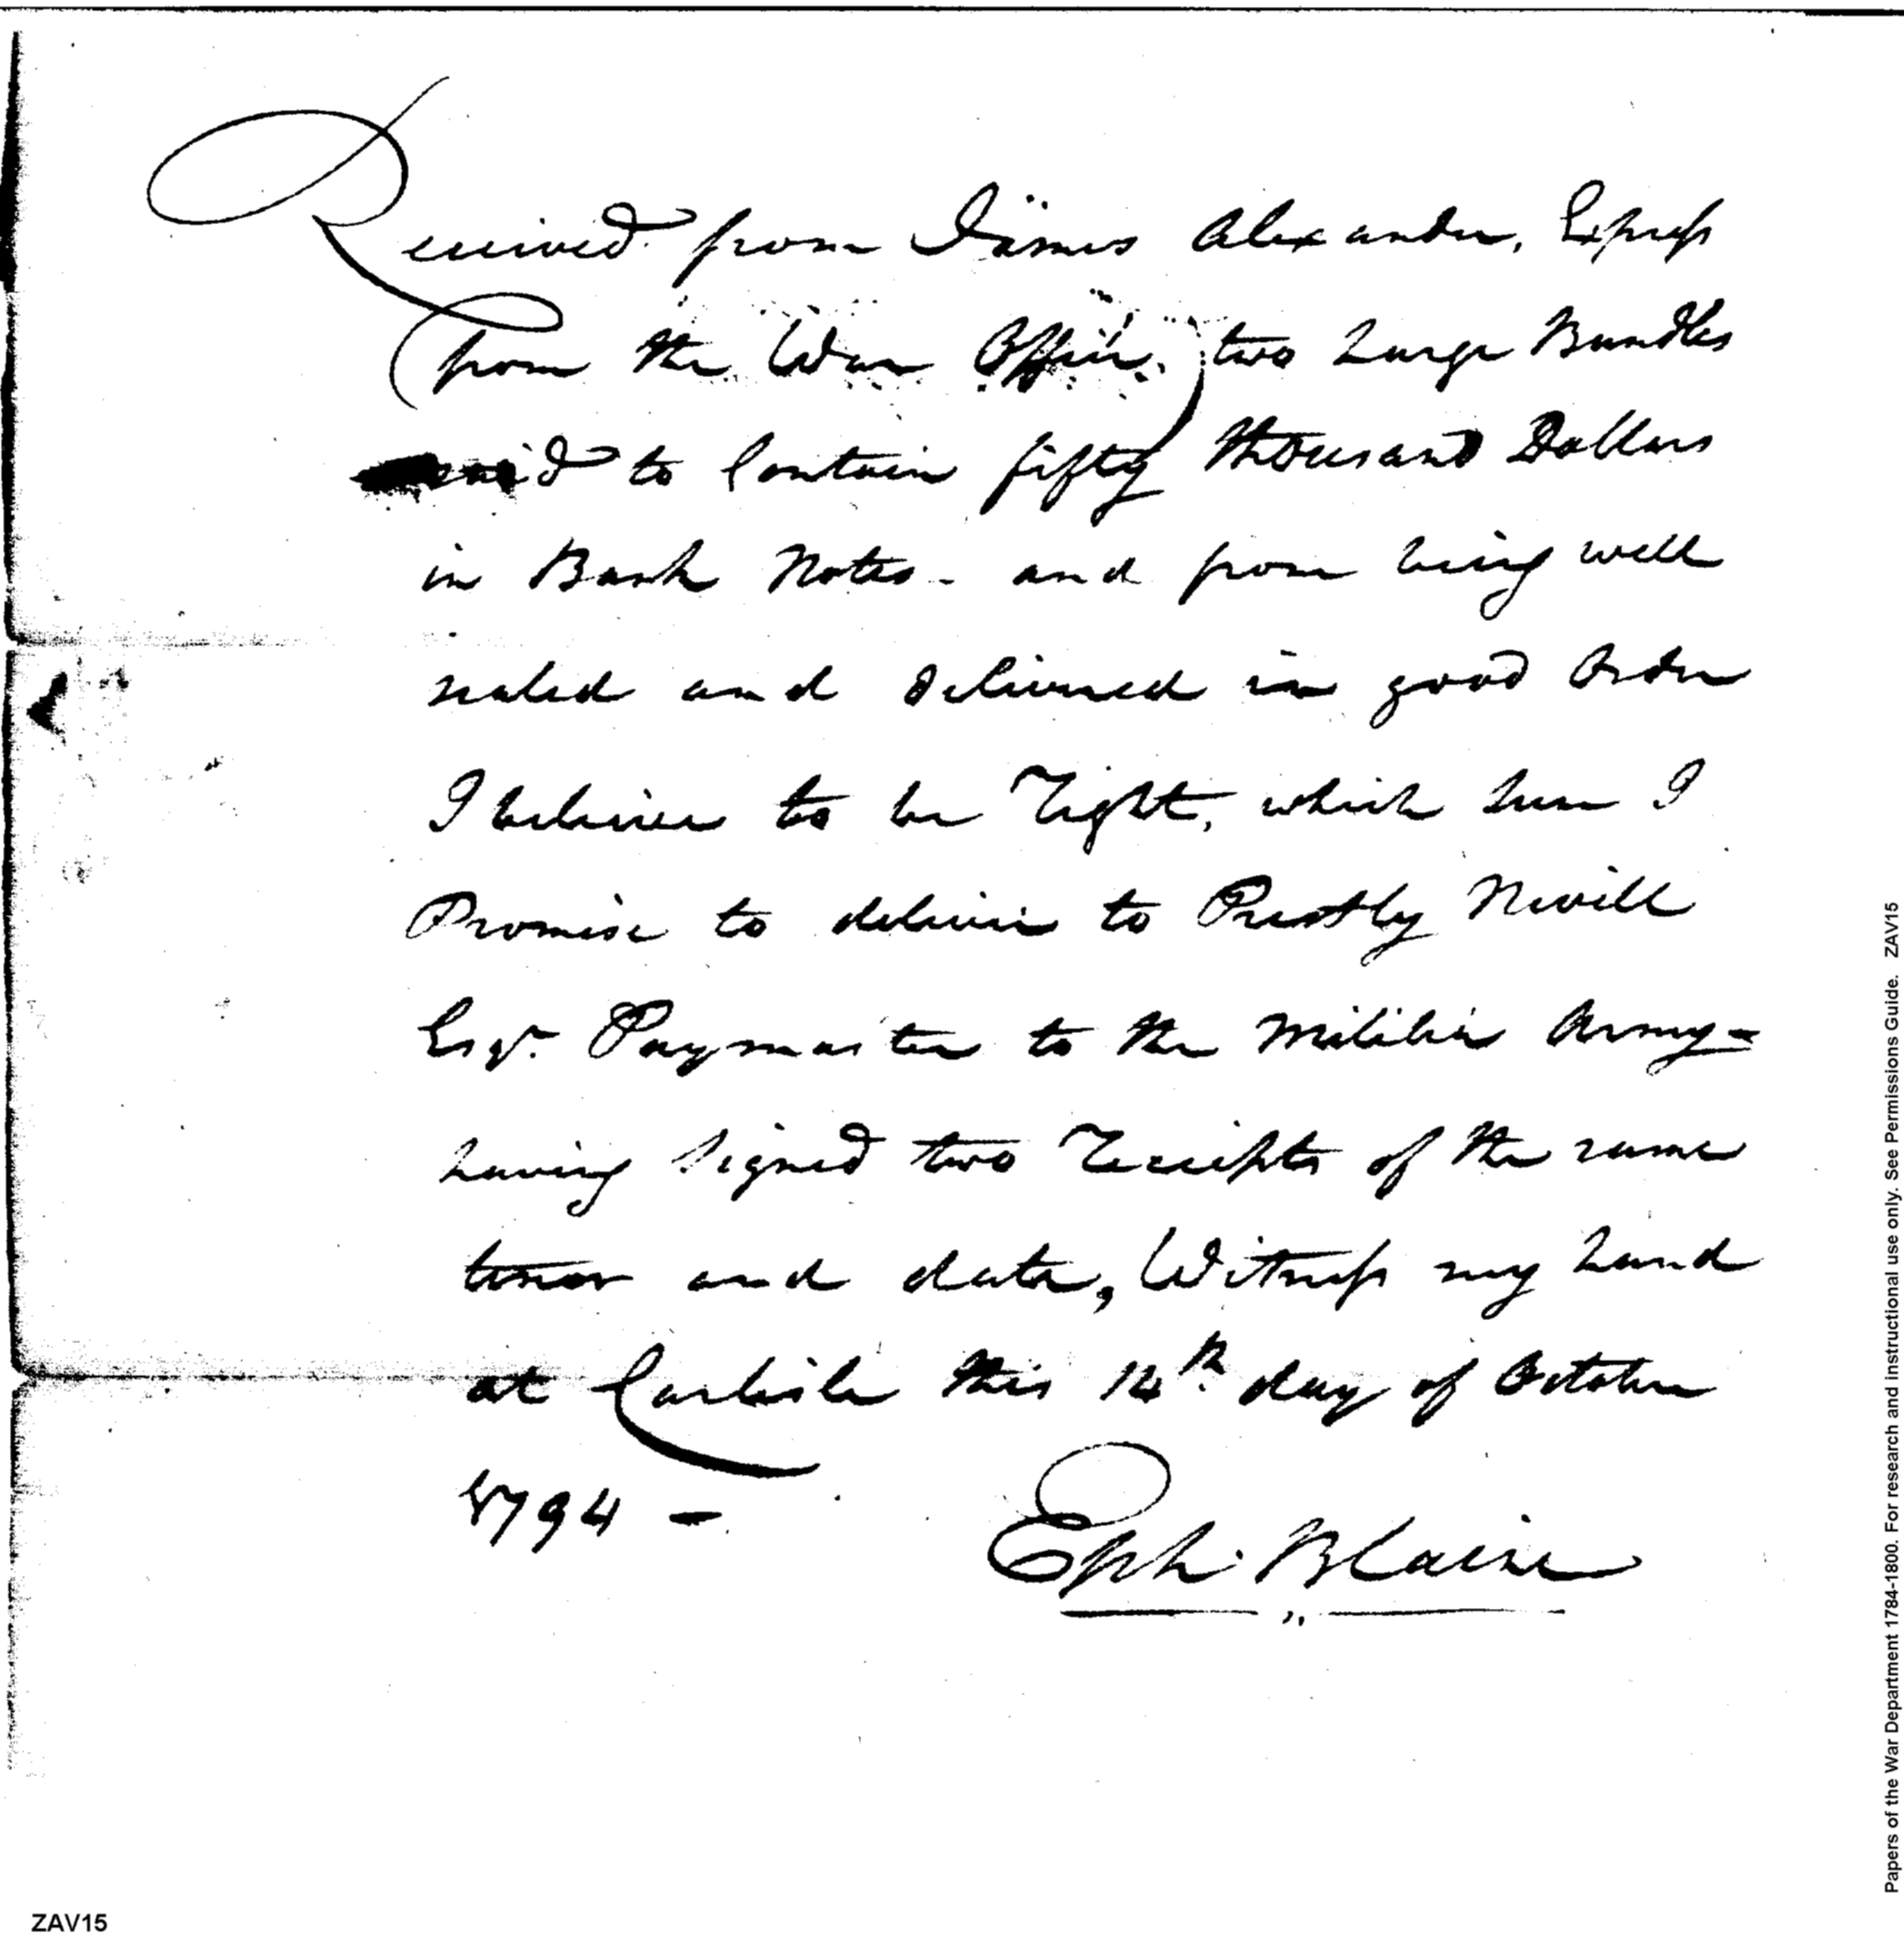 Received from James Alexander, Express
(from the War Office) two Large Bundles
said to Contain fifty thousand Dollars
in Bank Notes - and from being well
sealed and delivered in good Order
I believe to be Right, which sum I
Promise to deliver to Prestly Nevill
Esqr. Paymaster to the Militia Army -
having signed two Receipts of the same
tenor and date, Witness my hand
at Carlisle this 14th day of October
1794 -
Eph. Blaine
ZAV15
Papers of the War Department 1784-1800. For research and instructional use only. See Permissions Guide. ZAV15